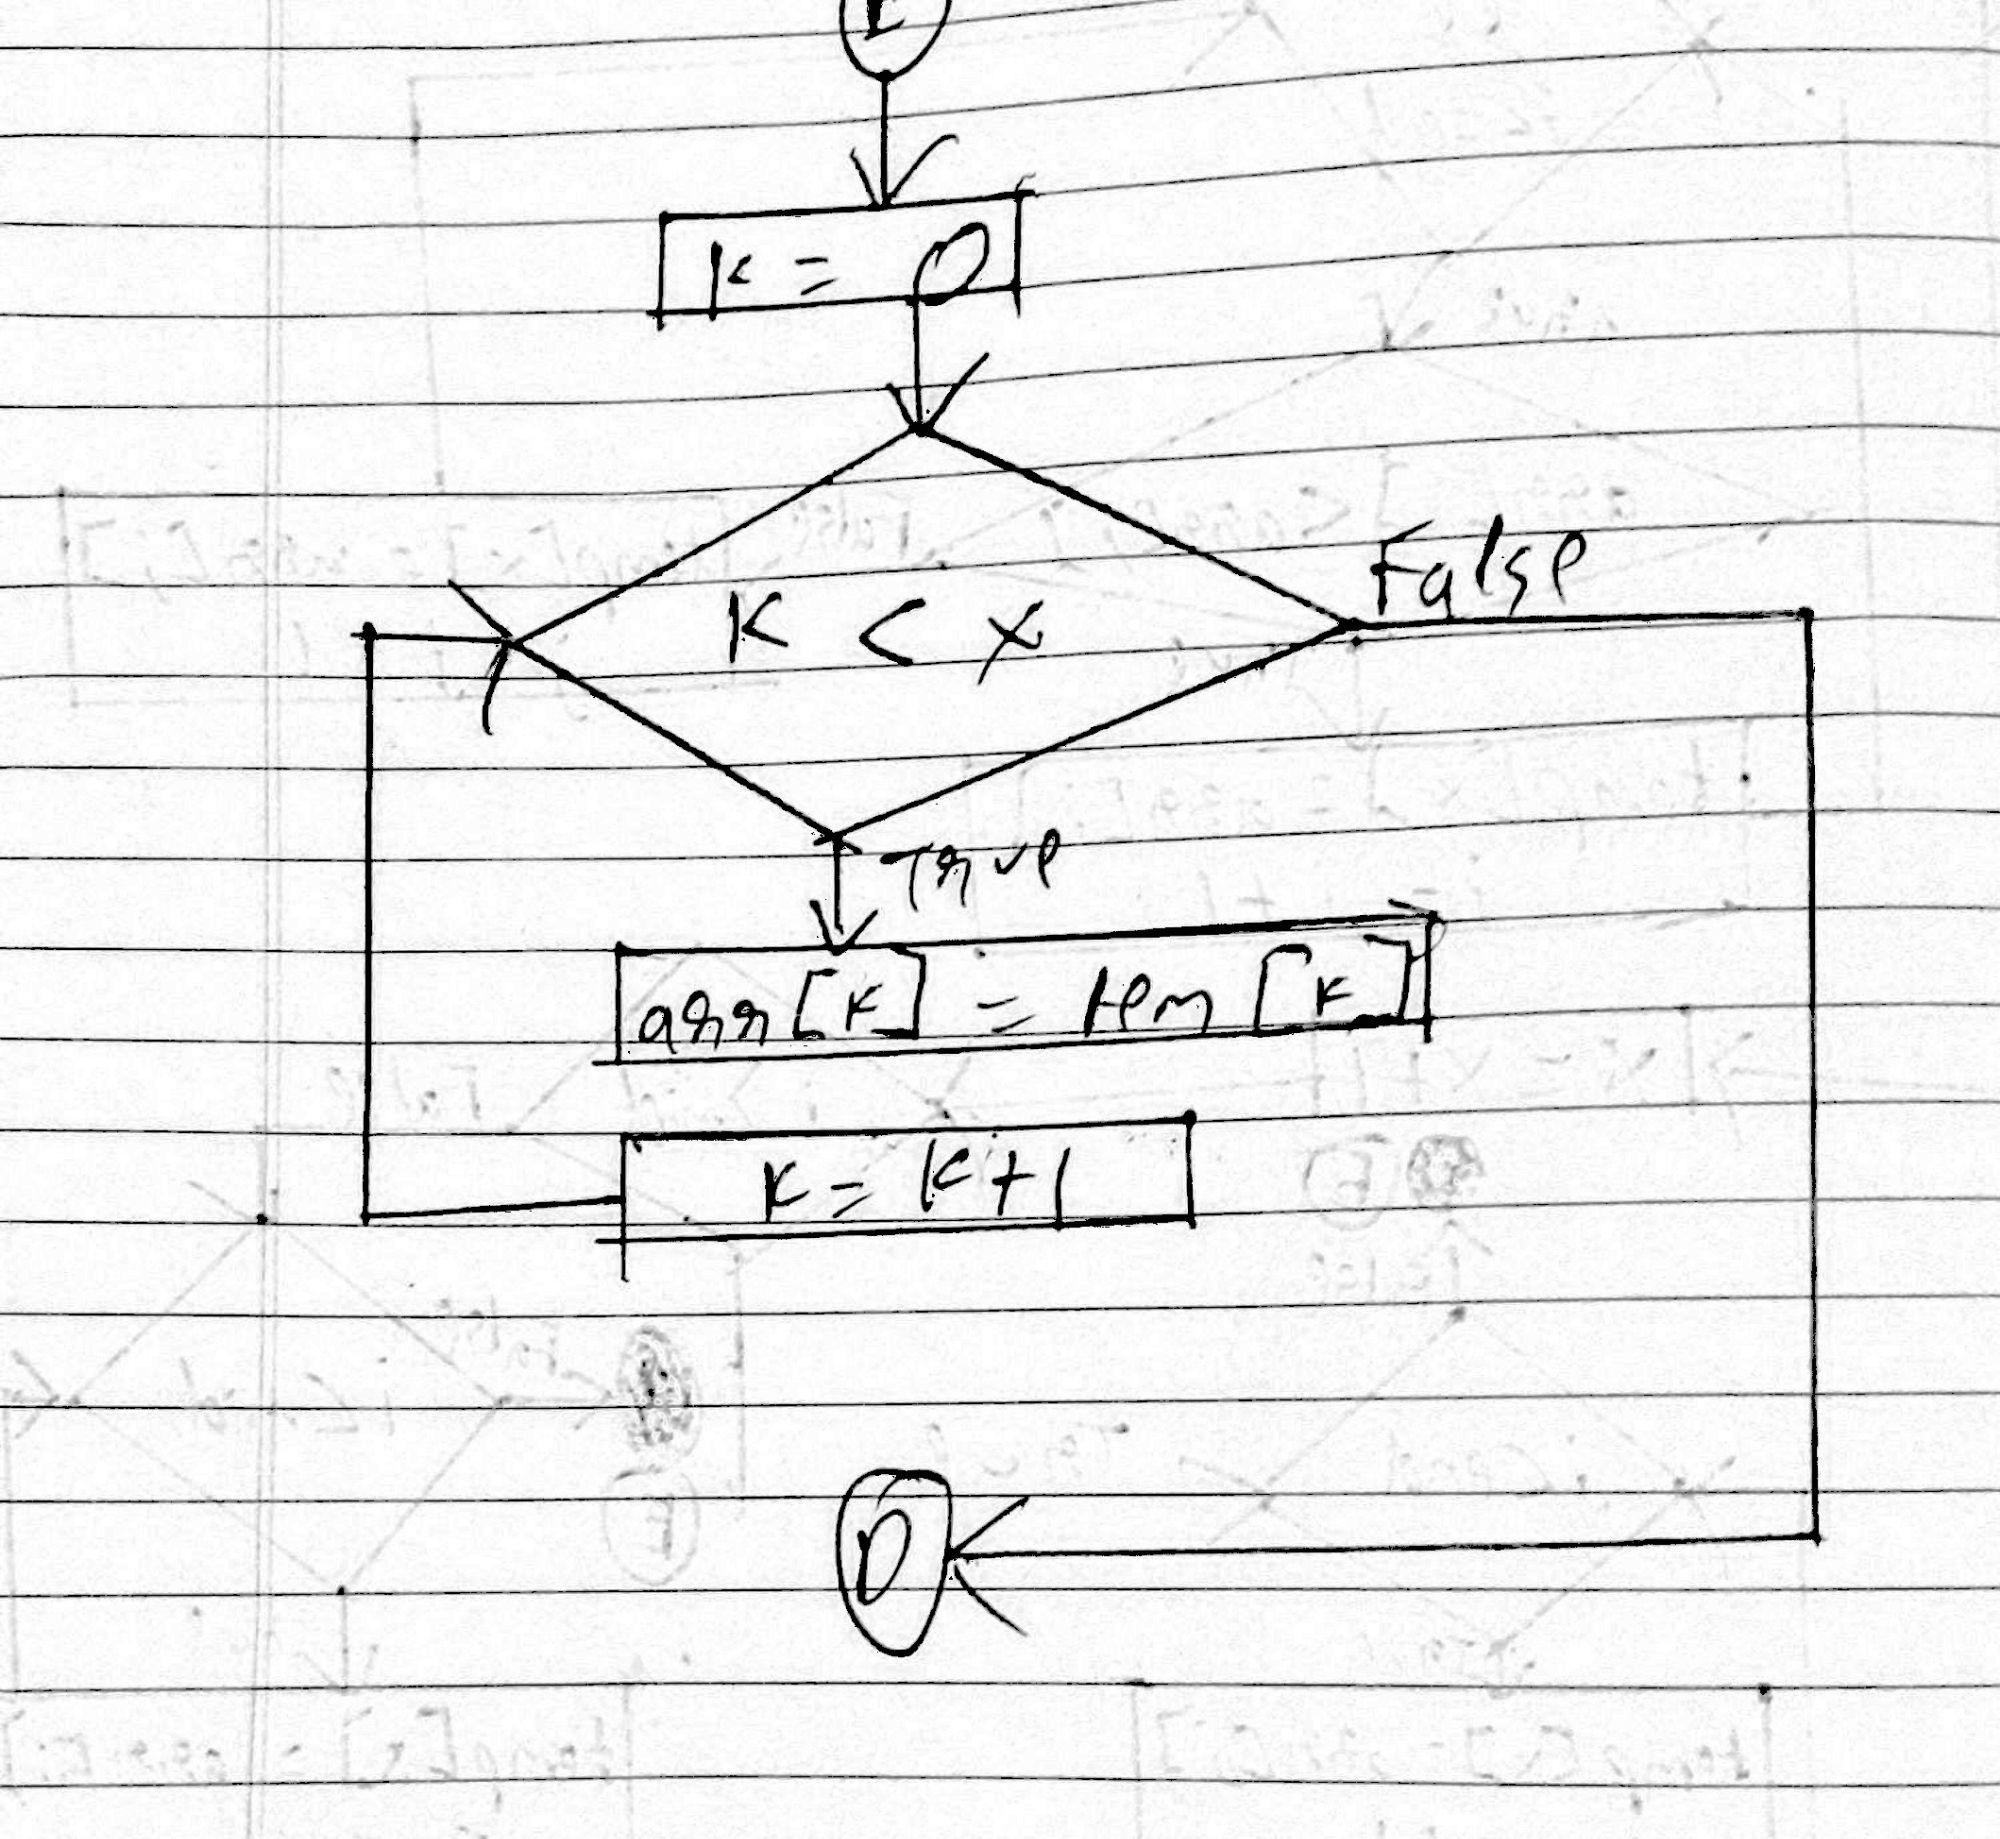 E
k = 0
K < x
False
True
arr[K] = tem[K]
K = K+1
D